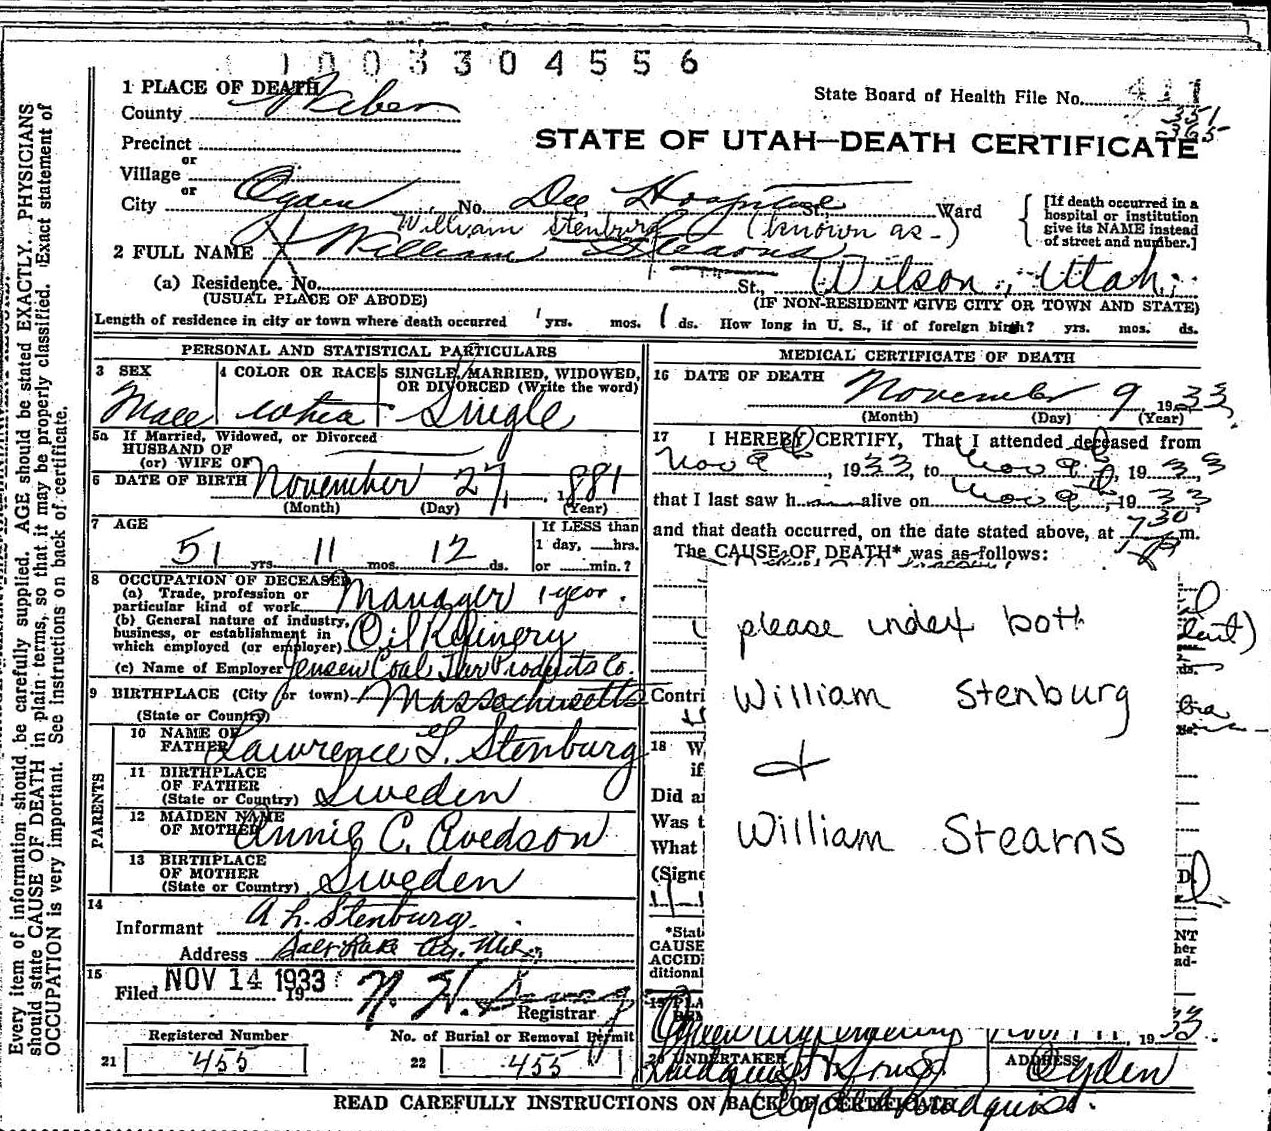 1003304556
1 PLACE OF DEATH
County Weber
State Board of Health File No. 411
351
365
Precinct
STATE OF UTAH—DEATH CERTIFICATE
or
Village
or
City Ogden No. Dee Hospital St., Ward
[If death occurred in a
hospital or institution
give its NAME instead
of street and number.]
William Stenburg (known as-)
2 FULL NAME William Stearns
(a) Residence. No. St., Wilson, Utah,
(USUAL PLACE OF ABODE) (IF NON-RESIDENT GIVE CITY OR TOWN AND STATE)
Length of residence in city or town where death occurred yrs. mos. 1 ds. How long in U. S., if of foreign birth? yrs. mos. ds.
PERSONAL AND STATISTICAL PARTICULARS
3 SEX 4 COLOR OR RACE 5 SINGLE, MARRIED, WIDOWED,
OR DIVORCED (Write the word)
Male white Single
5a If Married, Widowed, or Divorced
HUSBAND OF
(or) WIFE OF
6 DATE OF BIRTH November 27, 1881
(Month) (Day) (Year)
7 AGE If LESS than
51 yrs. 11 mos. 12 ds. 1 day, hrs.
or min.?
8 OCCUPATION OF DECEASED
(a) Trade, profession or
particular kind of work Manager 1 year.
(b) General nature of industry,
business, or establishment in
which employed (or employer) Oil Refinery
(c) Name of Employer Jensen Coal Tar Products Co.
9 BIRTHPLACE (City or town) Massachusetts
(State or Country)
PARENTS
10 NAME OF
FATHER Lawrence L. Stenburg
11 BIRTHPLACE
OF FATHER
(State or Country) Sweden
12 MAIDEN NAME
OF MOTHER Annie C. Avedson
13 BIRTHPLACE
OF MOTHER
(State or Country) Sweden
14
Informant A. L. Stenburg
Address Salt Lake Cy.
15
Filed NOV 14 1933 19
Registrar
Registered Number No. of Burial or Removal Permit
21 455 22 455
MEDICAL CERTIFICATE OF DEATH
16 DATE OF DEATH
November 9, 1933
(Month) (Day) (Year)
17 I HEREBY CERTIFY, That I attended deceased from
Nov 9, 1933 to Nov 9, 1933
that I last saw h alive on Nov 9, 1933
and that death occurred, on the date stated above, at 7 30 P m.
The CAUSE OF DEATH* was as follows:
please index both
William Stenburg
+
William Stearns
Contri
18 W
if
Did a
Was t
What
(Signe
D.
*Stat
CAUSE
ACCIDI
ditional
NT
her
ad-
19 PLA
33
20 UNDERTAKER ADDRESS
Lindquist & Sons Ogden
READ CAREFULLY INSTRUCTIONS ON BACK OF CERTIFICATE
Every item of information should be carefully supplied. AGE should be stated EXACTLY. PHYSICIANS
should state CAUSE OF DEATH in plain terms, so that it may be properly classified. Exact statement of
OCCUPATION is very important. See instructions on back of certificate.